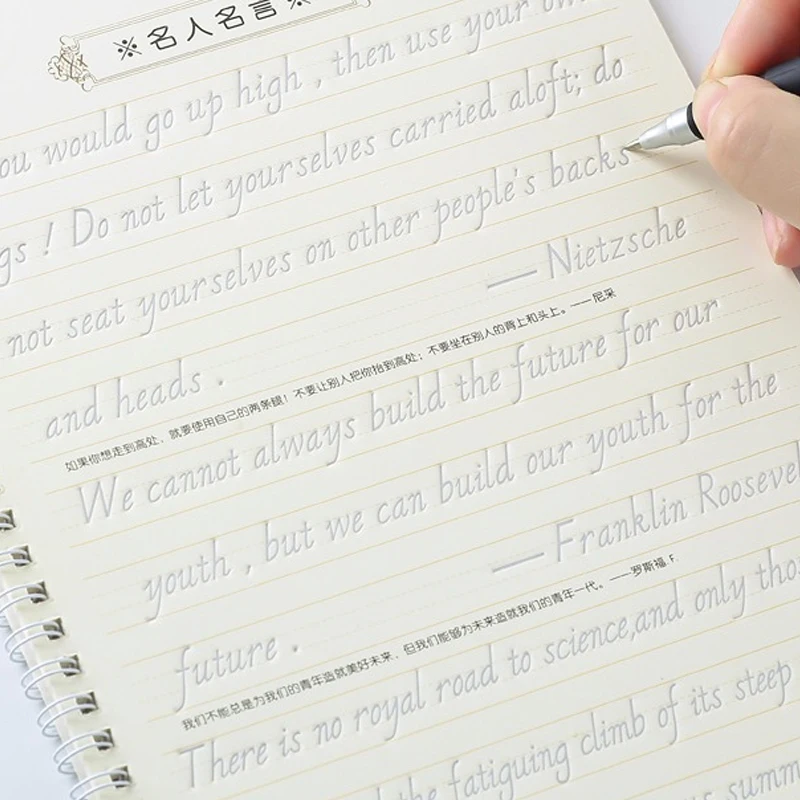 ※名人名言※
ou would go up high , then use your ow
gs ! Do not let yourselves carried aloft; do
not seat yourselves on other people's backs
and heads . — Nietzsche
如果你想走到高处，就要使用自己的两条腿！不要让别人把你抬到高处；不要坐在别人的背上和头上。——尼采
We cannot always build the future for our
youth , but we can build our youth for the
future . — Franklin Roosevel
我们不能总是为我们的青年造就美好未来，但我们能够为未来造就我们的青年一代。——罗斯福.F.
There is no royal road to science,and only tho
the fatiguing climb of its steep
summ